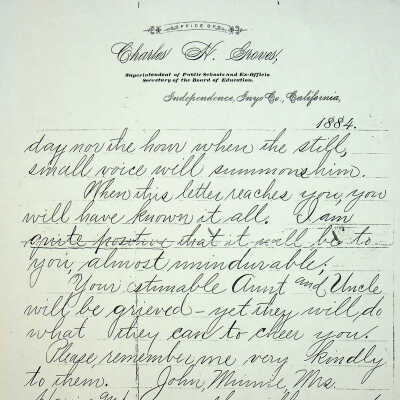 OFFICE OF
Charles N. Groves,
Superintendent of Public Schools and Ex-Officio
Secretary of the Board of Education.
Independence, Inyo Co., California,
1884.
day nor the hour when the still,
small voice will summons him.
When this letter reaches you you
will have known it all. I am
quite positive that it will be to
you, almost unindurable.
Your estimable Aunt and Uncle
will be grieved – yet they will do
what they can to cheer you.
Please, remember me very kindly
to them. John, Minnie, Mrs.